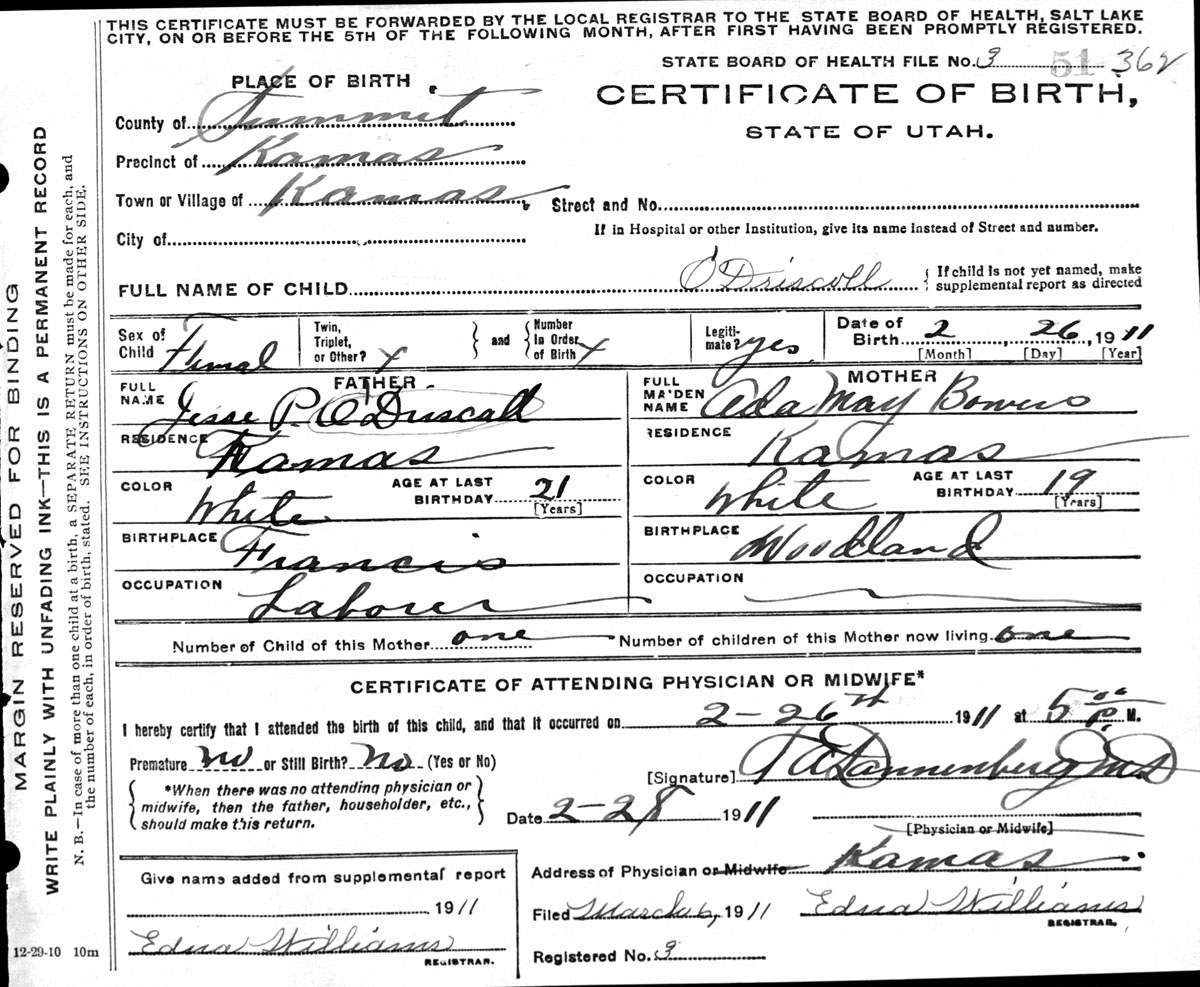 THIS CERTIFICATE MUST BE FORWARDED BY THE LOCAL REGISTRAR TO THE STATE BOARD OF HEALTH, SALT LAKE
CITY, ON OR BEFORE THE 5TH OF THE FOLLOWING MONTH, AFTER FIRST HAVING BEEN PROMPTLY REGISTERED.
STATE BOARD OF HEALTH FILE No. 3 51 362
PLACE OF BIRTH
CERTIFICATE OF BIRTH,
STATE OF UTAH.
County of Summit
Precinct of Kamas
Town or Village of Kamas Street and No.
City of If in Hospital or other Institution, give its name instead of Street and number.
FULL NAME OF CHILD O'Driscoll { If child is not yet named, make
supplemental report as directed
Sex of Child Femal Twin, Triplet, or Other? x } and { Number In Order of Birth x Legiti-mate? yes Date of Birth 2, 26, 1911
[Month] [Day] [Year]
FATHER
FULL NAME Jesse P. O'Driscoll
RESIDENCE Kamas
COLOR White AGE AT LAST BIRTHDAY 21 [Years]
BIRTHPLACE Francis
OCCUPATION Laborer
MOTHER
FULL MAIDEN NAME Ada May Bowers
RESIDENCE Kamas
COLOR White AGE AT LAST BIRTHDAY 19 [Years]
BIRTHPLACE Woodland
OCCUPATION
Number of Child of this Mother one Number of children of this Mother now living one
CERTIFICATE OF ATTENDING PHYSICIAN OR MIDWIFE*
I hereby certify that I attended the birth of this child, and that it occurred on 2-26th 1911 at 5 00 P. M.
Premature No or Still Birth? No (Yes or No)
[Signature] Dannenberg M D
{ *When there was no attending physician or
midwife, then the father, householder, etc.,
should make this return. }
Date 2-28 1911
[Physician or Midwife]
Address of Physician or Midwife Kamas
Give name added from supplemental report
1911
Edna Williams
REGISTRAR.
Filed March 6, 1911 Edna Williams
REGISTRAR.
Registered No. 3
12-29-10 10m
MARGIN RESERVED FOR BINDING
WRITE PLAINLY WITH UNFADING INK—THIS IS A PERMANENT RECORD
N. B.—In case of more than one child at a birth, a SEPARATE RETURN must be made for each, and
the number of each, in order of birth, stated. SEE INSTRUCTIONS ON OTHER SIDE.